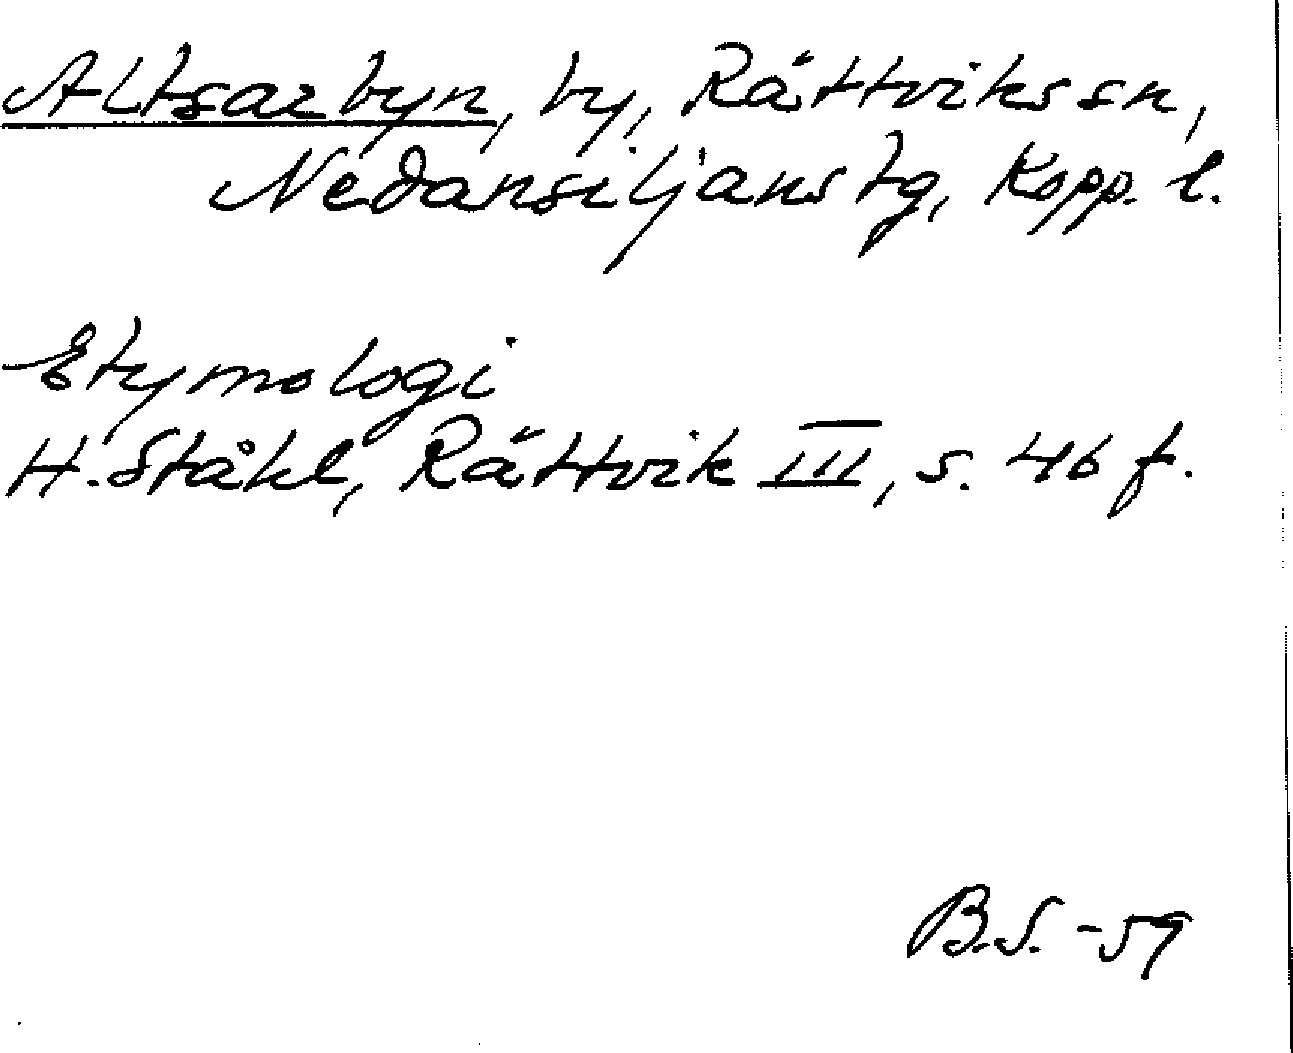 Altsarbyn, by, Rättviks sn,
Nedansiljans tg, Kopp. l.
Etymologi
H. Ståhl, Rättvik III, s. 46 f.
B.S. -59